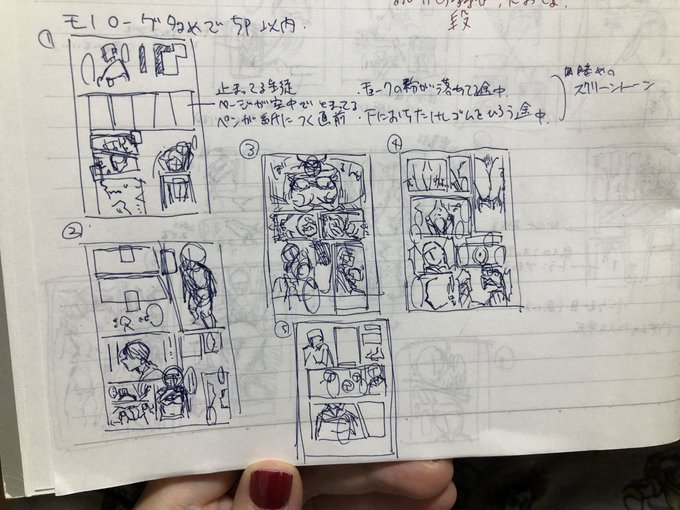 モノローグ多めで5P以内.
段
①
止まってる生徒
ページが空中でとまってる
ペンが紙につく直前
・チョークの粉が落ちてる途中
・下におちたけしゴムをひろう途中
スクリーントーン
②
③
④
⑤